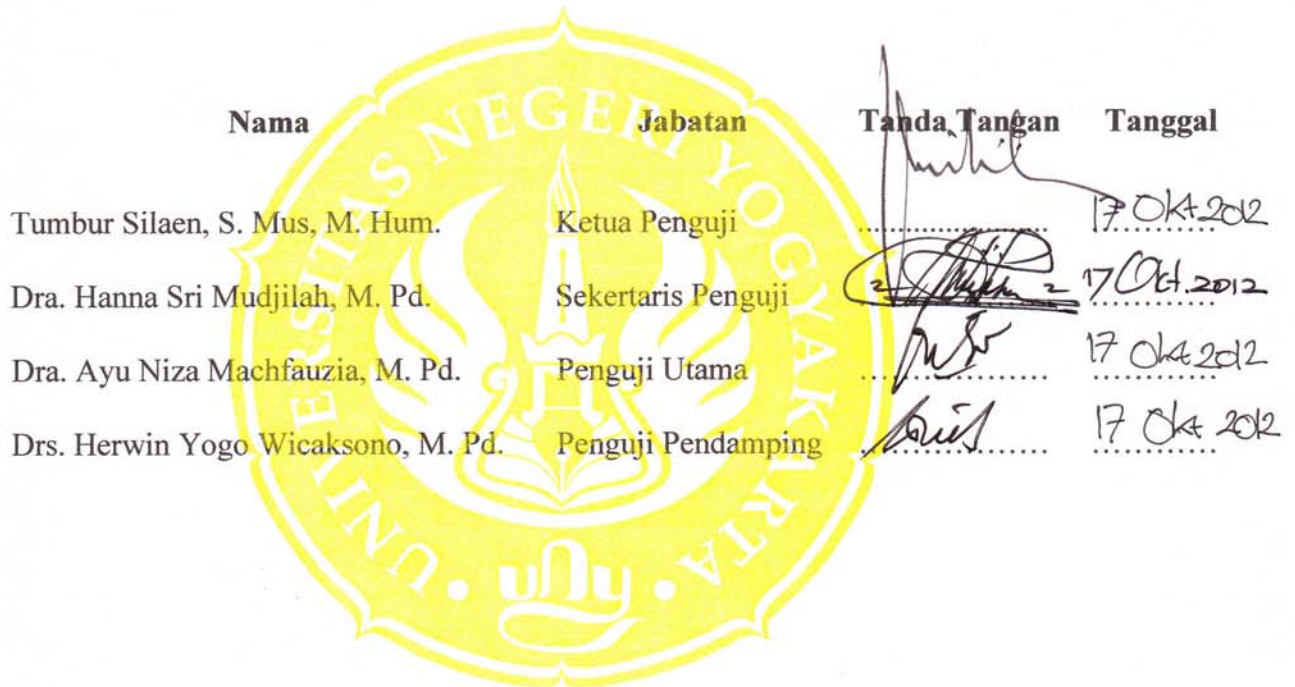 Nama Jabatan Tanda Tangan Tanggal
Tumbur Silaen, S. Mus, M. Hum. Ketua Penguji .................... 17 Okt 2012
Dra. Hanna Sri Mudjilah, M. Pd. Sekertaris Penguji 17 Okt. 2012
Dra. Ayu Niza Machfauzia, M. Pd. Penguji Utama .................... 17 Okt 2012
Drs. Herwin Yogo Wicaksono, M. Pd. Penguji Pendamping .................... 17 Okt 2012
UNIVERSITAS NEGERI YOGYAKARTA
uny